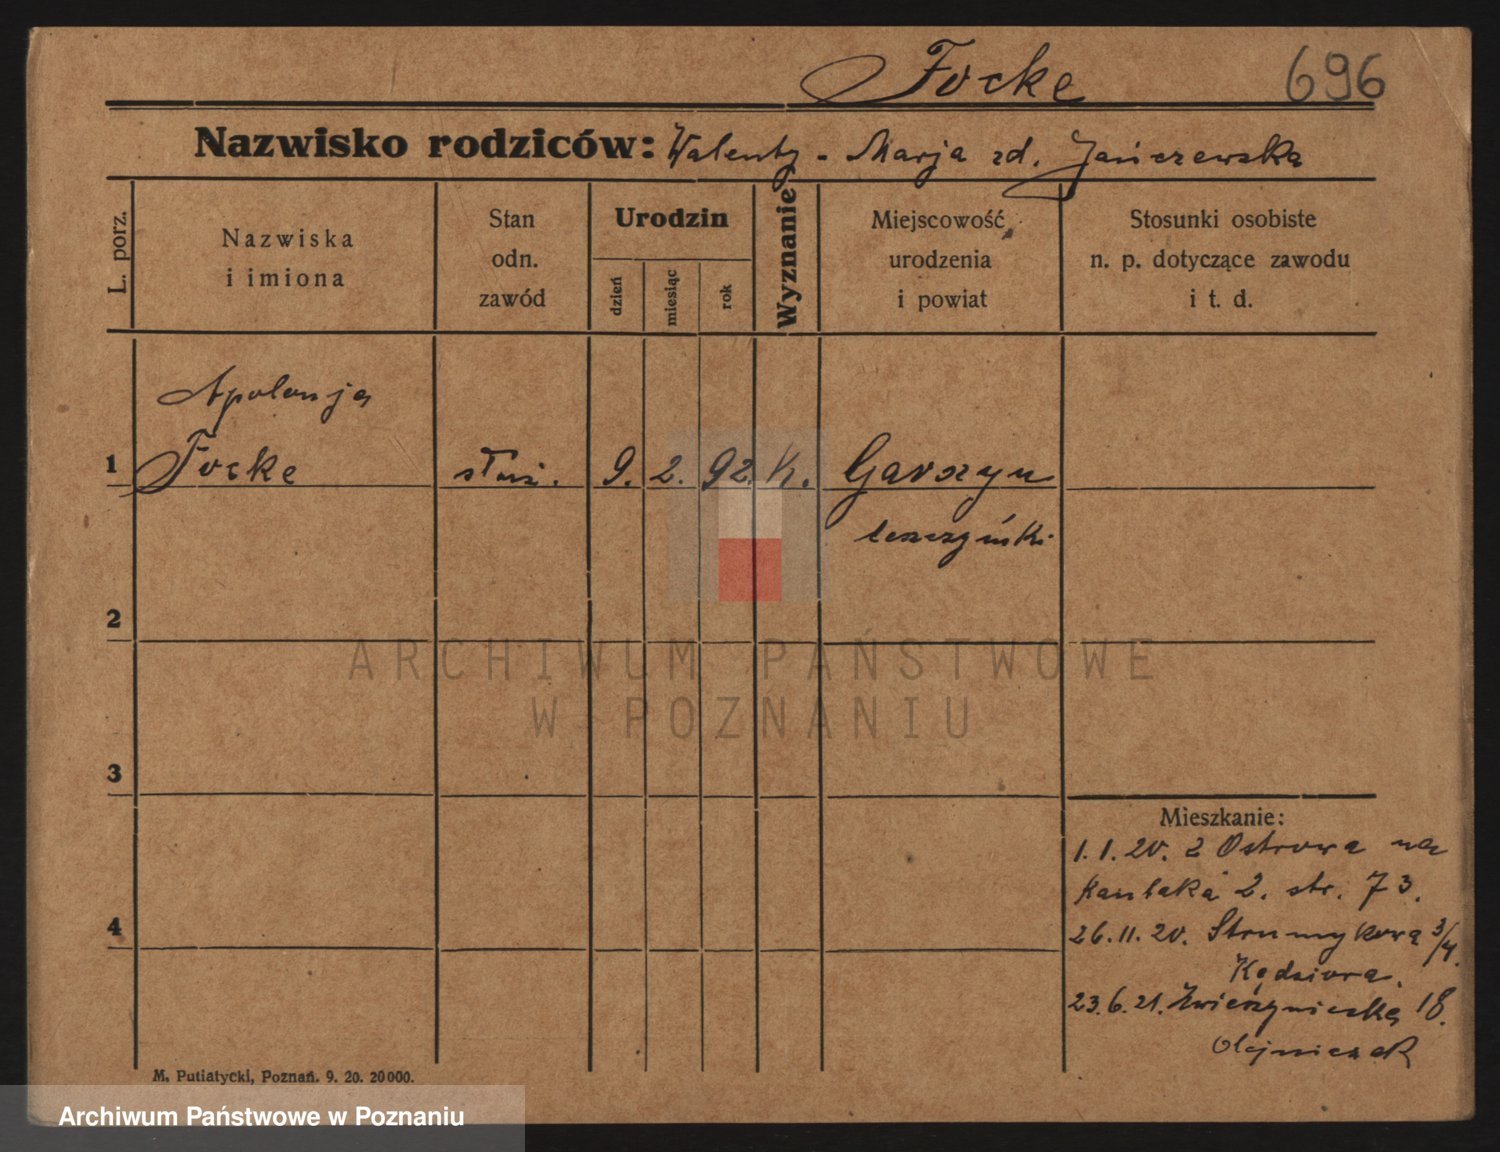 Focke 696
Nazwisko rodziców: Walenty - Marja zd. Jańczewska
L. porz.
Nazwiska
i imiona
Stan
odn.
zawód
Urodzin
dzień
miesiąc
rok
Wyznanie
Miejscowość
urodzenia
i powiat
Stosunki osobiste
n. p. dotyczące zawodu
i t. d.
Apolonja
1 Focke służ. 9. 2. 92. K. Garzyn
leszczyński
2
ARCHIWUM PAŃSTWOWE
W POZNANIU
3
Mieszkanie:
1. 1. 20. z Ostrowa na
Kantaka 2. str. 73.
4
26. 11. 20. Strumykowa 3/4.
Kędziora.
23. 6. 21. Zwierzyniecka 18.
Olejniczak
M. Putiatycki, Poznań. 9. 20. 20000.
Archiwum Państwowe w Poznaniu